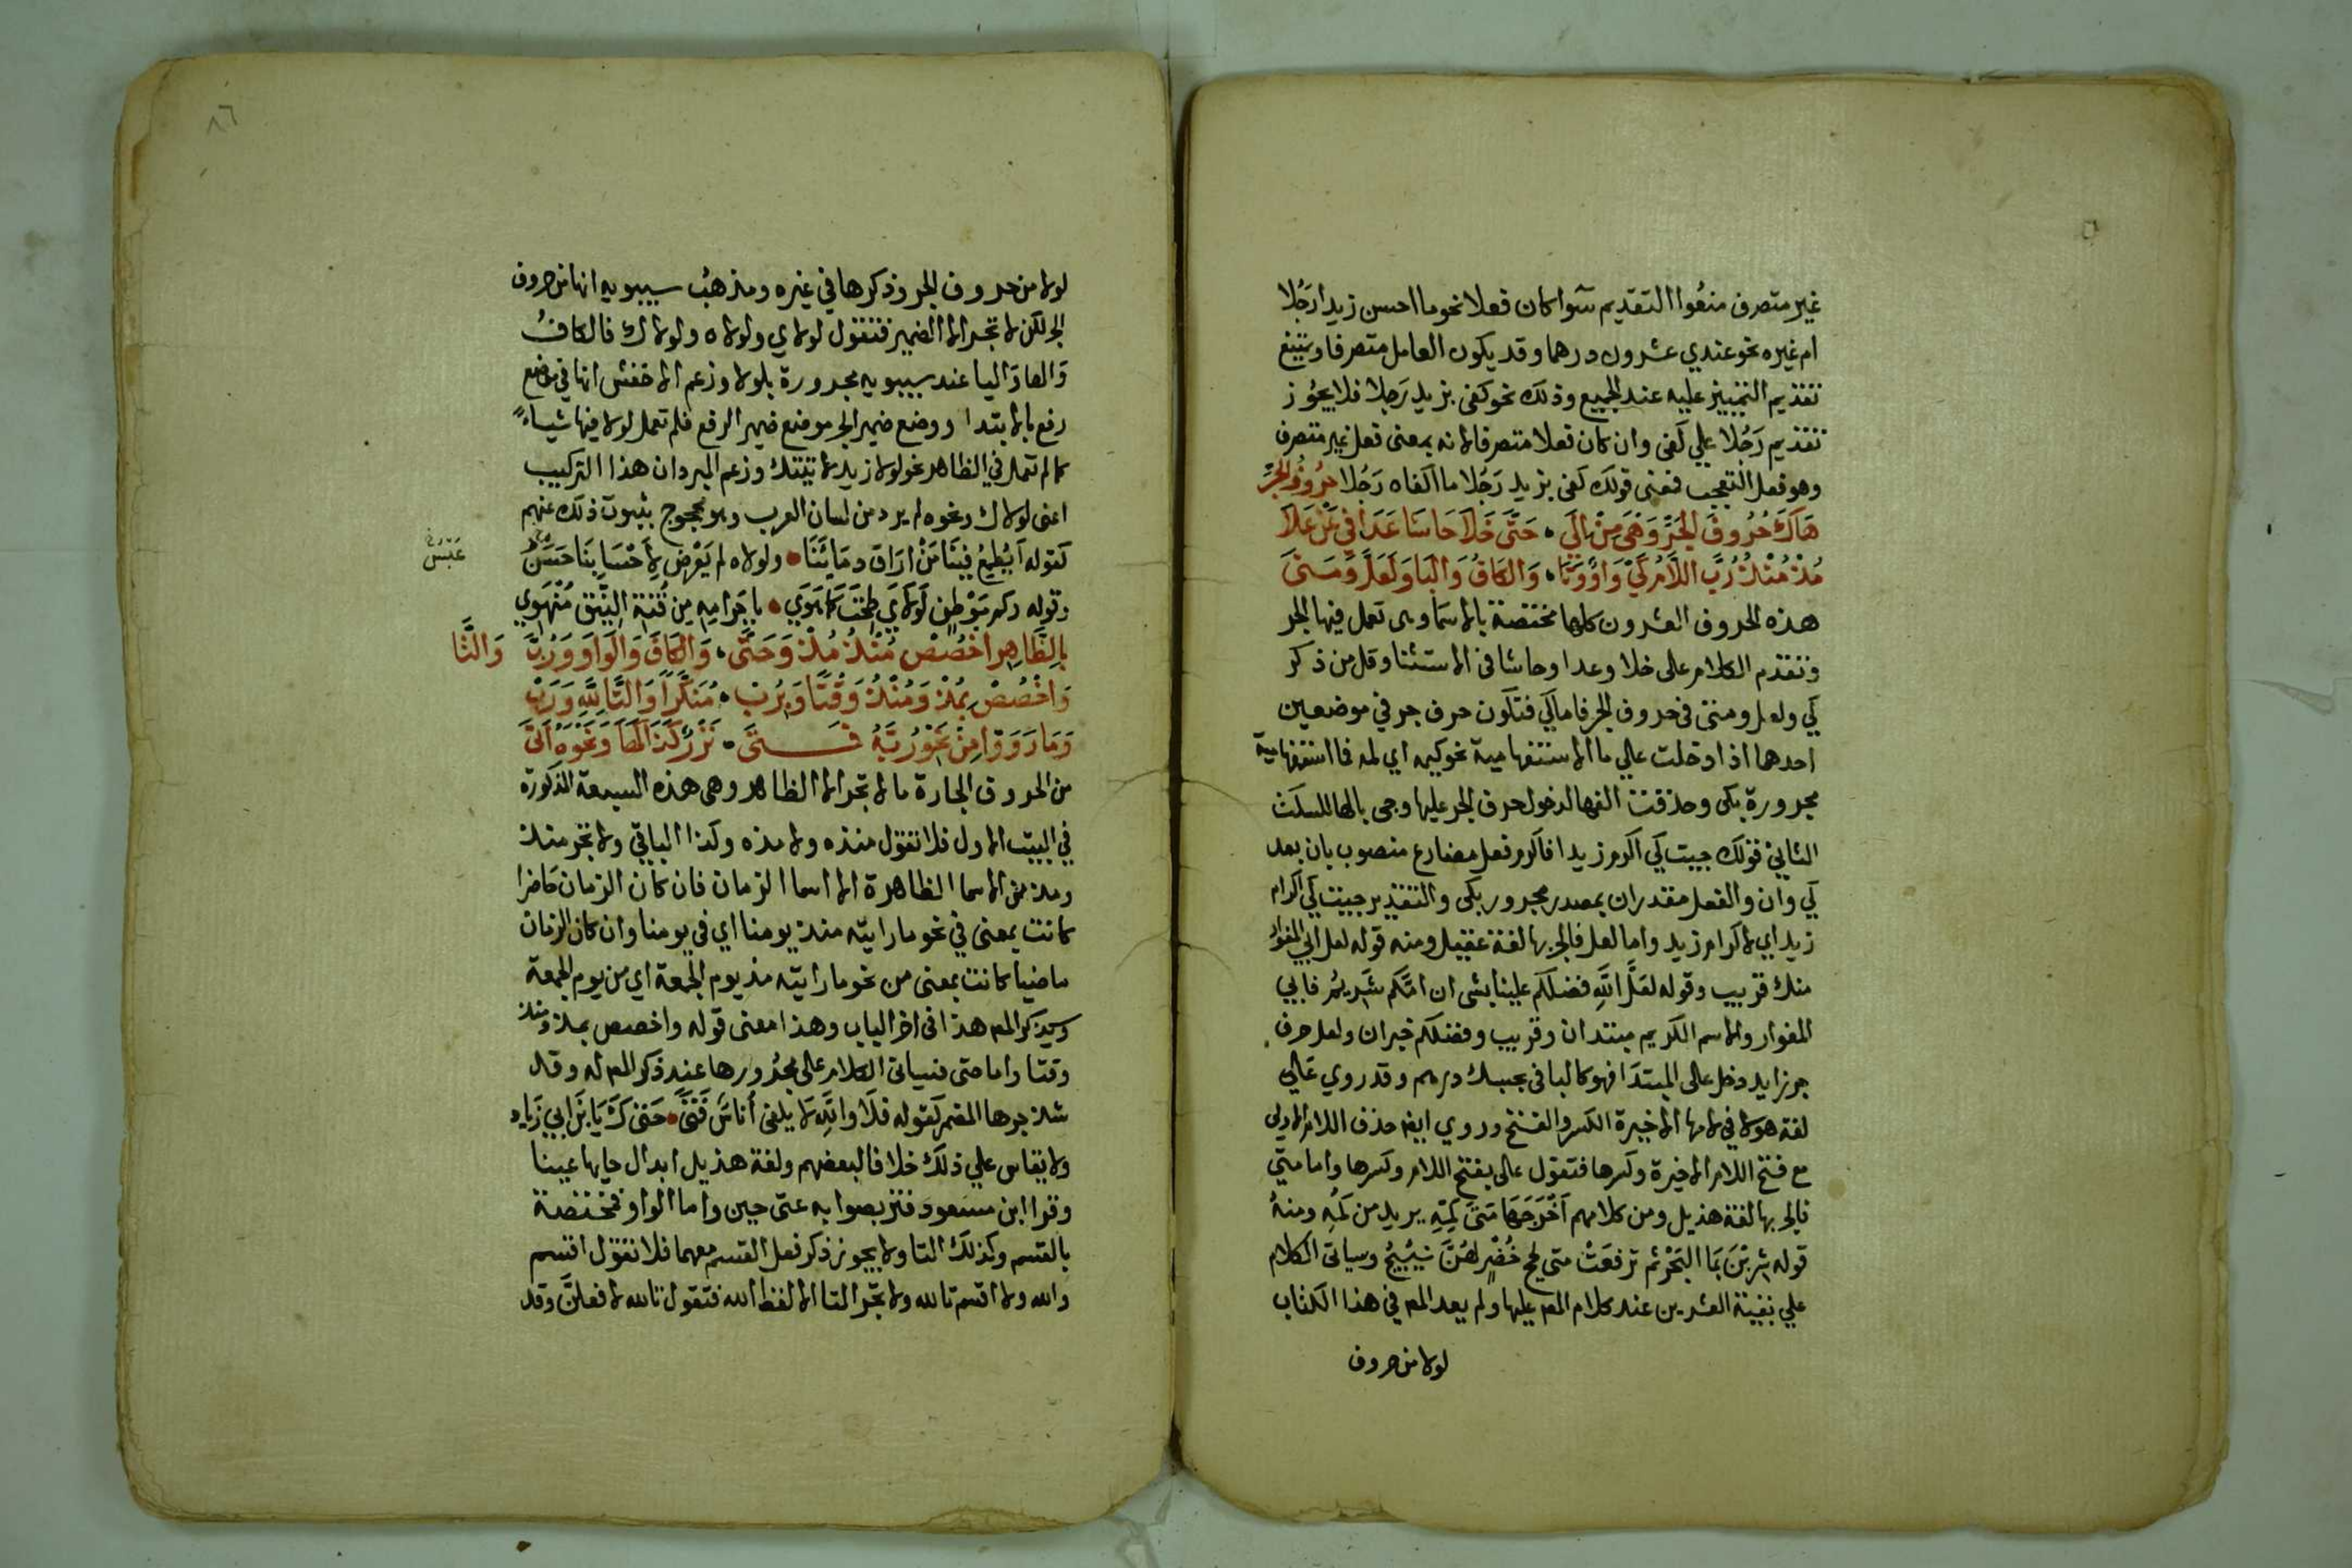 غير متصرف منعوا التقديم سوا كان فعلا نحو ما احسن زيدا رجلا
ام غيره نحو عندي عشرون درهما وقد يكون العامل متصرفا ويمتنع
تقديم التمييز عليه عند الجميع وذلك نحو كفى بزيد رَجلا فلا يجُوز
تقديم رَجُلا علي كفى وان كان فعلا متصرفا لانه بمعنى فعل غير متصرف
وهو فعل التعجب فمعنى قولك كفى بزيد رَجُلا ما اكفاه رَجُلا حُرُوفُ الجَرِّ
هَاكَ حُرُوفَ الجَرِّ وَهْيَ مِنْ الَي • حَتَّى خَلاَ حَاشَا عَدَا في عَنْ عَلاَ
مُذْ مُنْذُ رُبَّ اللاَّمُ كَيْ وَاوٌ وَتَا • وَالكَافُ وَالبَا وَلَعَلَّ وَمَتَى
هذه الحروف العشرون كلها مختصة بالاسما وهى تعمل فيها الجر
وتقدم الكلام على خلا وعدا وحاشا في الاستثنا وقل من ذكر
كي ولعل ومتى في حروف الجر فاما كَي فتكون حرف جر في موضعين
احدهما اذا دخلت علي ما الاستفهامية نحو كيمه اي لمه فما استفهامية
مجرورة بكى وحذفت الفها لدخول حرف الجر عليها وجى بالها للسكت
الثاني قولك جيت كَي اكرم زيدا فاكرم فعل مضارع منصوب بان بعد
كَي وان والفعل مقدران بمصدر مجرور بكى والتقدير جيت كَي اكرام
زيد اي لاكرام زيد واما لعل فالجر بها لغة عقيل ومنه قوله لعل ابي المغوار
منك قريب وقوله لعَلَّ اللَّهِ فضلكم علينا بشى ان امَّكم شَريمُ فابي
المغوار والاسم الكريم مبتدان وقريب وفضلكم خبران ولعل حرف
جر زايد دخل على المبتدَا فهو كالبا في بحسبك درهم وقد روي عَلي
لغة هولا في لامها الاخيرة الكسر والفتح وروي ايض حذف اللام الاولى
مع فتح اللام الاخيرة وكسرها فتقول عل بفتح اللام وكسرها واما متي
فالجر بها لغة هذيل ومن كلامهم اَخْرَجَهَا مَتَى كُمِّهِ يريد من كُمِّهِ ومنهُ
قوله شربْنَ بمَا البَحْر ثم ترفعَتْ متى لجج خُضْرٍ لهُنَّ نَئِيْجُ وسياتى الكلام
علي بقية العشرين عند كلام المص عليها ولم يعد المص في هذا الكتاب
لولا من حروف
٨٦
لولا من حروف الجر وذكرها في غيره ومذهبُ سيبويه انها من حروف
الجر لكن لا تجر الا الضمير فتقول لولاي ولولاه ولولاك فالكافُ
وَالها وَاليا عند سيبويه مجرورة بلولا وزعم الاخفش انها في موضع
رفع بالابتدا ووضع ضمير الجر موضع ضمير الرفع فلم تعمل لولا فيها شياءً
كما لم تعمل في الظاهر نحو لولا زيد لاتيتك وزعم المبرد ان هذا التركيب
اعنى لولاك ونحوه لم يرد من لسان العرب وهو محجوج بثبوت ذلك عنهم
كقوله اَيُطِيعُ فينَا مَنْ اَرَاقَ دمَائَنَا • ولولاه لم يَعْرِضْ لِأَحْسَابِنَا حَسَنْ
عَبَسْ
وقوله وكم مَوْطِنٍ لَولَايَ طِحْتَ كَمَا هَوَي • باَجْرَامِه مِن قُنَّةِ النِّيْق مُنْهَوِي
بِالظَّاهِرِ اخْصُصْ مُنْذُ مُذْ وَحَتَّى • وَالكَافَ وَالوَاوَ وَرُبَّ وَالتَّا
وَاخْصُصْ بِمُذْ وَمُنْذُ وَقْتًا وَبِرُبْ • مُنَكَّرًا وَالتَّا لِلَّهِ وَرَبْ
وَمَا رَوَوْا مِنْ نَحْوِ رُبَّهُ فَـــتَى • نَزْرٌ كَذَا كَهَا وَنَحْوُهُ اَتَى
من الحروف الجارة ما لا تجر الا الظاهر وهى هذه السبعة المذكورة
في البيت الاول فلا تقول منذه ولا مذه وكذا الباقي ولا تجر منذ
ومذ من الاسما الظاهرة الا اسما الزمان فان كان الزمان حَاضرا
كانت بمعنى في نحو ما رايته منذ يومنا اي في يومنا وان كان الزمان
ماضيا كانت بمعنى من نحو ما رايته مذ يوم الجمعة اي من يوم الجمعة
وسيذكر المص هذا في اخر الباب وهذا معنى قوله واخصص بمذ ومنذ
وقتا واما حتى فسياتى الكلام على مجرُورها عند ذكر المص له وقد
شذ جرها المضمر كقوله فلَا وَاللَّهِ لَا يلفى أُناسٌ فَتىً • حَتى كَ يَا بْنَ ابي زَيادِ
ولا يقاس علي ذلك خلافا لبعضهم ولغة هذيل ابدال حايها عينا
وقرا ابن مسعود فتربصوا به عتى حين واما الواو فمختصة
بالقسم وكذلك التا ولا يجوز ذكر فعل القسم معهما فلا تقول اقسم
والله ولا اقسم تالله ولا تجر التا الا لفظ الله فتقول تالله لافعلنَّ وقد